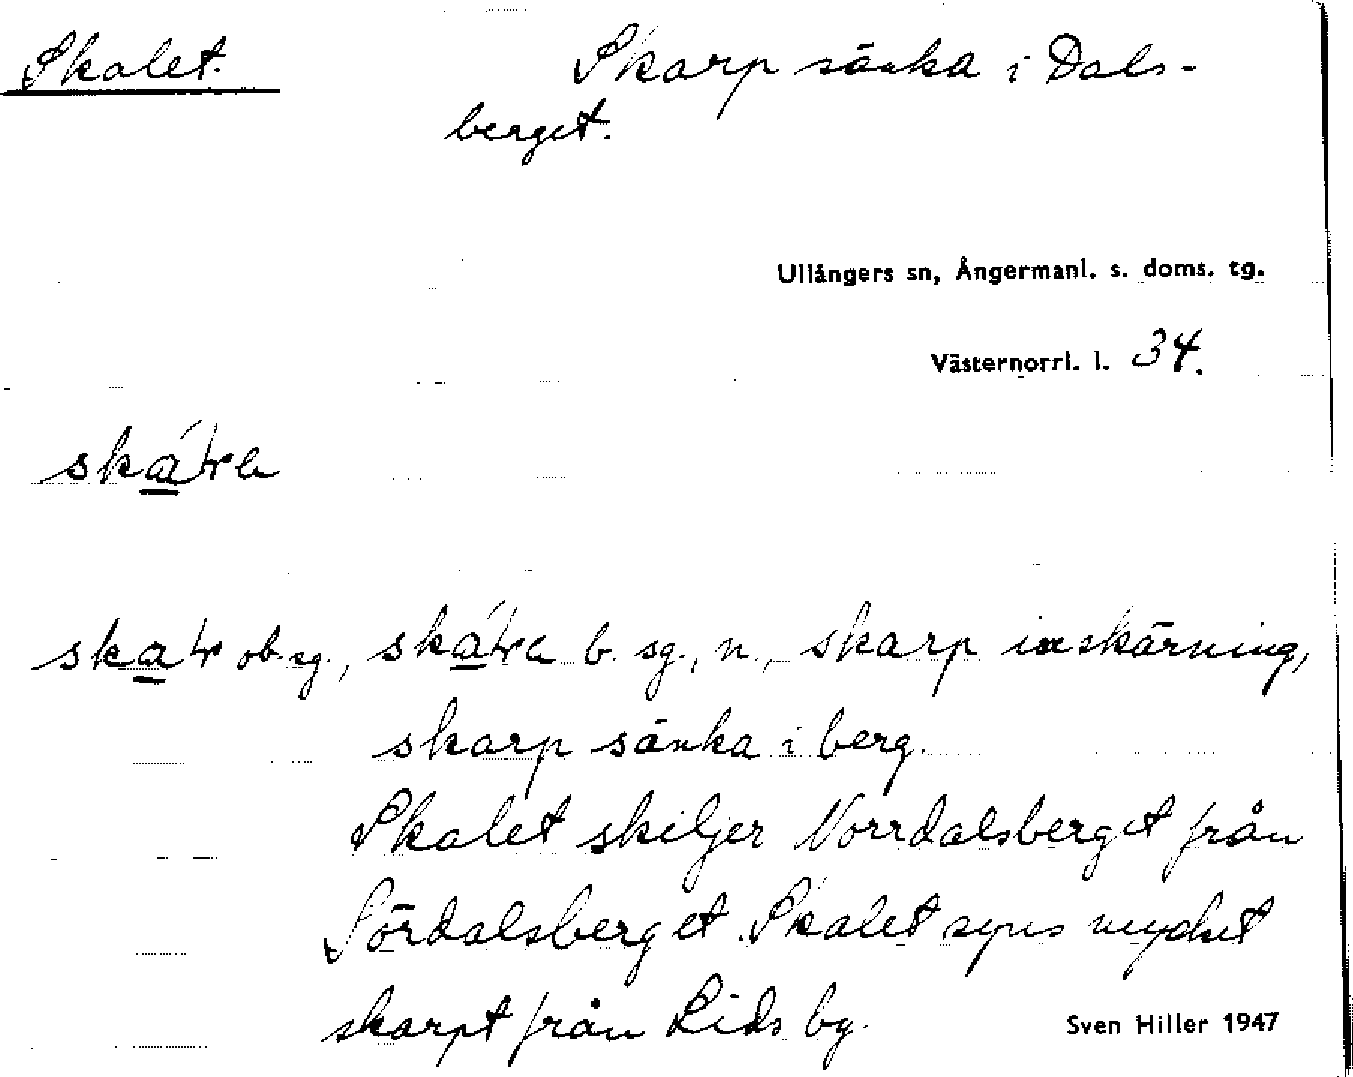 Skalet.
Skarp sänka i Dals-
berget.
Ullångers sn, Ångermanl. s. doms. tg.
Västernorrl. l. 34.
ob. sg., b. sg., n., skarp inskärning,
skarp sänka i berg.
Skalet skiljer Norrdalsberget från
Sördalsberget. Skalet syns mycket
skarpt från Lids by.
Sven Hiller 1947